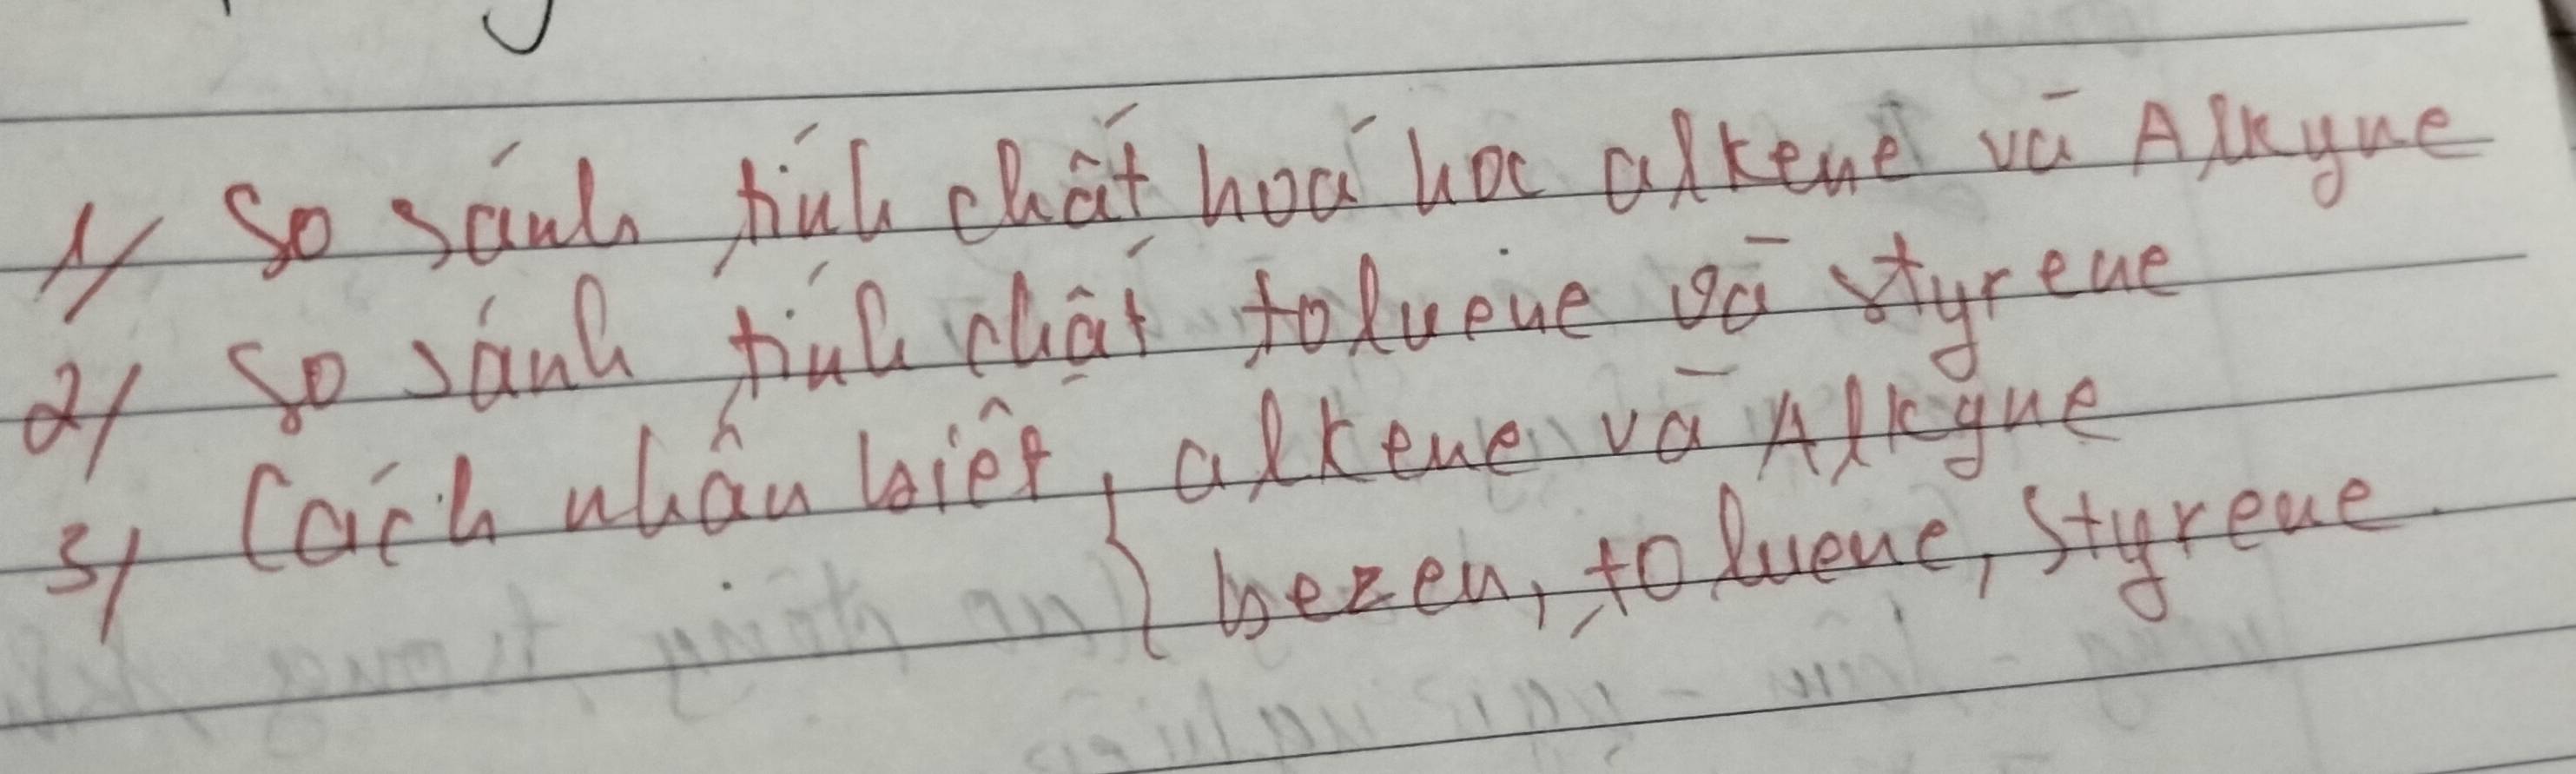 1/ So sánh tính chất hoá hoc alkene và Alkyne
2/ So sánh tính chất toluene và styrene
3/ Cách nhận biêt, alkene và Alkyne
{ bezen, toluene, styrene